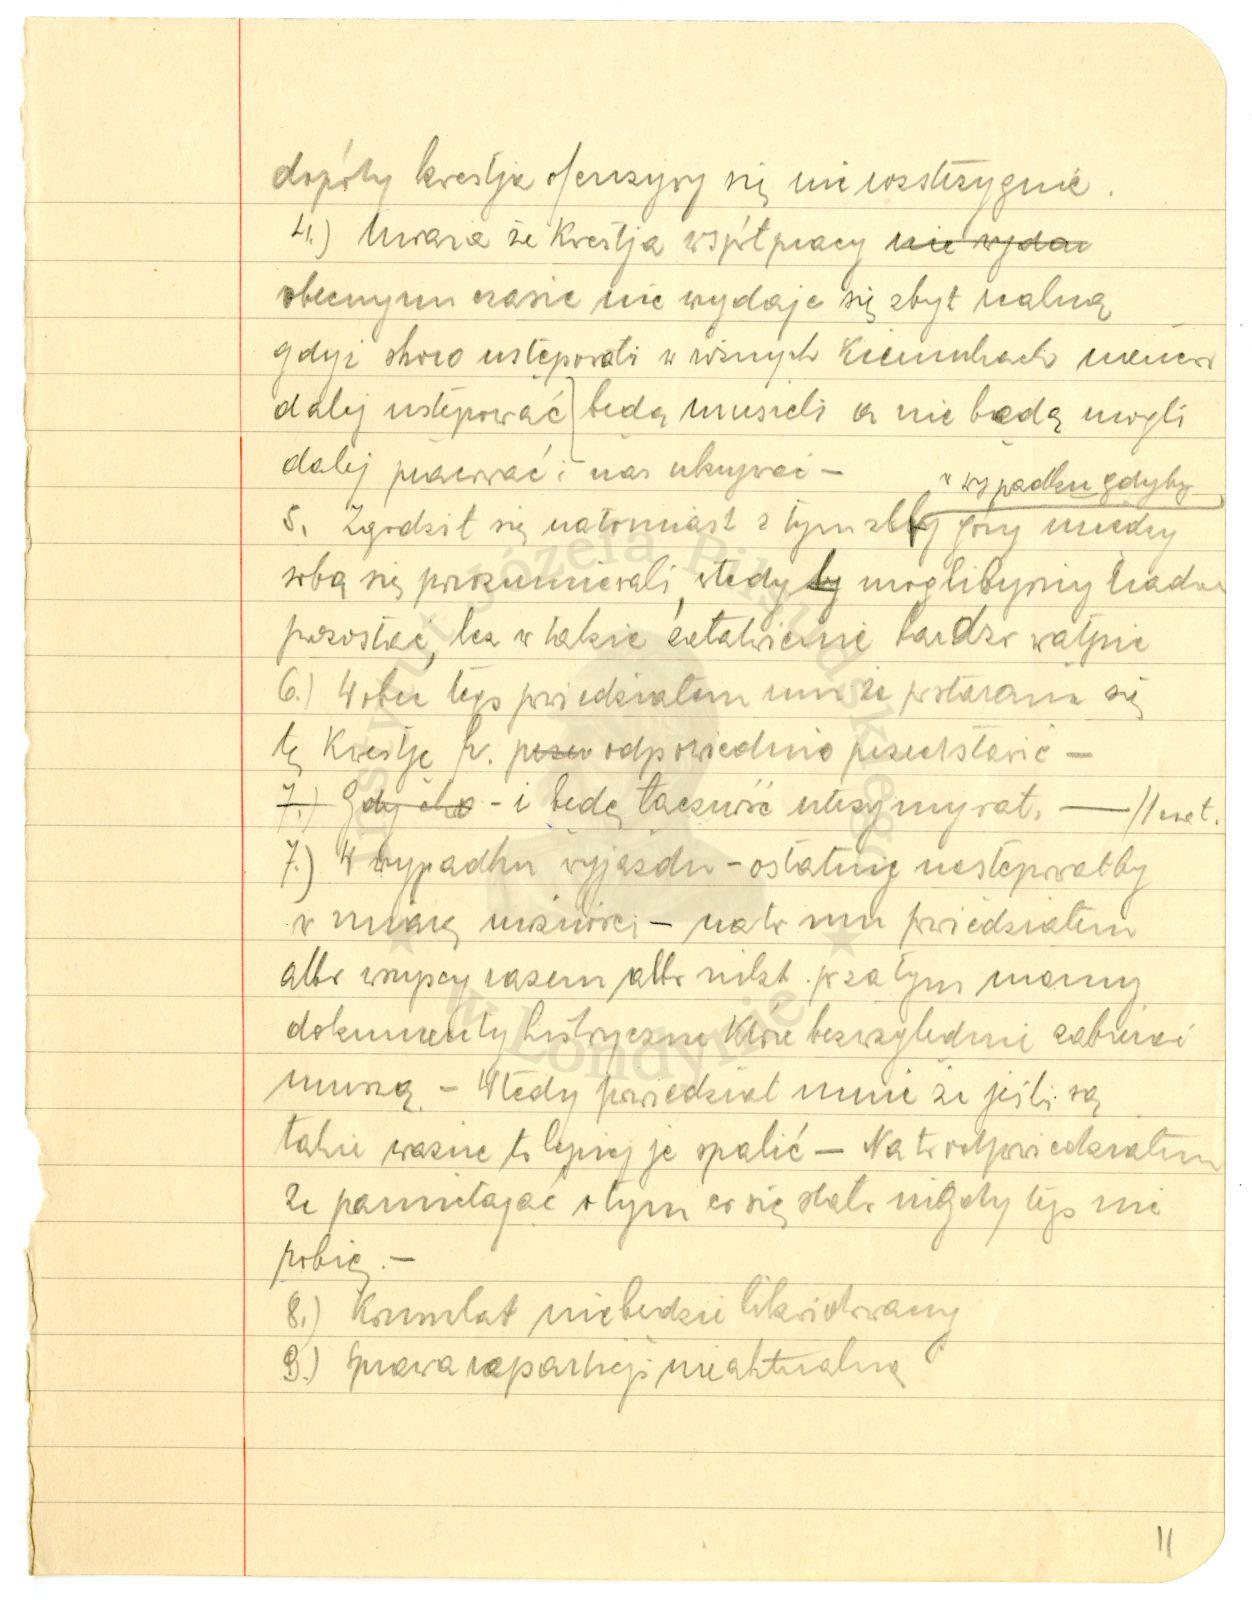 dopóty kwestja ofenzywy się nie rozstrzygnie.
4.) Uważa że kwestja współpracy nie wydaw
obecnym czasie nie wydaje się zbyt realną
gdyż skoro ustępowali w różnych kierunkach
dalej ustępować będą musieli a nie będą mogli
dalej pracować i nas ukrywać —
w wypadku gdyby
5. Zgodził się natomiast z tym żeby góry między
sobą się porozumiewali, wtedy by moglibyśmy nadal
pozostać, lecz w takie załatwienie bardzo wątpię
6.) Wobec tego powiedziałem mu że postaram się
tę kwestję p. odpowiednio przedstawić —
7.) Gdyby - i będę łączność utrzymywał. —
7.) W wypadku wyjazdu — ostatnię następowałby
w miarę możności — na to mu powiedziałem
albo wszyscy razem albo nikt. poza tym mamy
dokumenty historyczne które bezwzględnie zabierać
muszą. — Wtedy powiedział mnie że jeśli są
takie ważne to lepiej je spalić — Na to odpowiedziałem
że pamiętając o tym co się stało nigdy tego nie
zrobię. —
8.) Konsulat nie będzie likwidowany
9.) Sprawa nieaktualna
11
Instytut Józefa Piłsudskiego
w Londynie